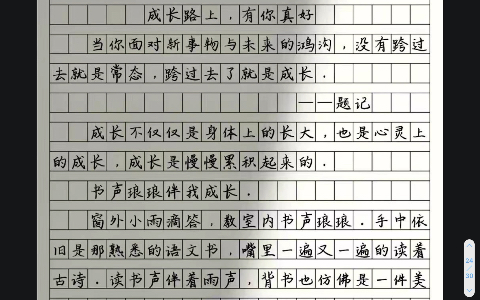 成长路上，有你真好
当你面对新事物与未来的鸿沟，没有跨过
去就是常态，跨过去了就是成长．
——题记
成长不仅仅是身体上的长大，也是心灵上
的成长，成长是慢慢累积起来的．
书声琅琅伴我成长．
窗外小雨滴答，教室内书声琅琅．手中依
旧是那熟悉的语文书，嘴里一遍又一遍的读着
古诗．读书声伴着雨声，背书也仿佛是一件美
24
30